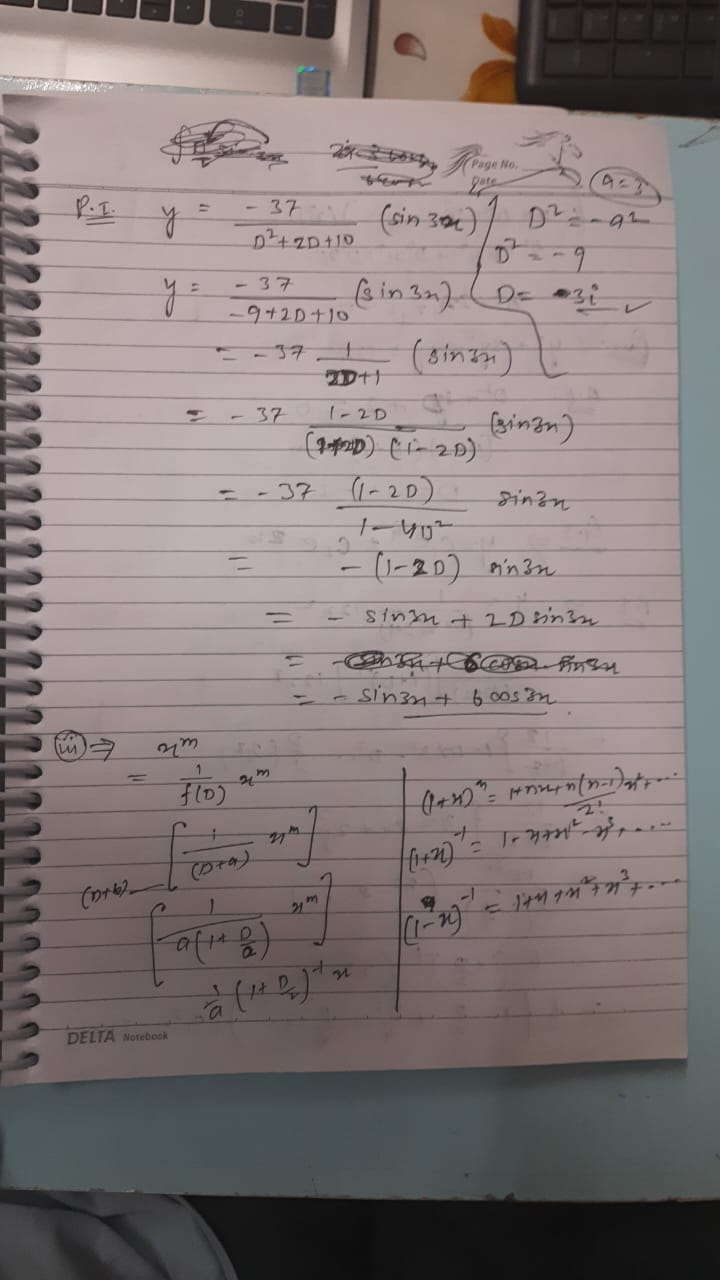 Page No.
Date
a=3
P.I. y = -37 / (D²+2D+10) (sin3x) D² = -a²
D² = -9
y = -37 / (-9+2D+10) (sin3x) D = 3i ✓
= -37 1 / (2D+1) (sin3x)
= -37 (1-2D) / ((1+2D) (1-2D)) (sin3x)
= -37 (1-2D) / (1-4D²) sin3x
= -(1-2D) sin3x
= - sin3x + 2D sin3x
= - sin3x + 6 cos3x
(iii) ⇒ x^m
= 1/f(D) x^m
[1/(D+a) x^m]
[1/(a(1+D/a)) x^m]
1/a (1+D/a)^-1 x
(1+x)^n = 1+nx+n(n-1)/2! x²+....
(1+x)^-1 = 1-x+x²-x³+....
(1-x)^-1 = 1+x+x²+x³+....
DELTA Notebook